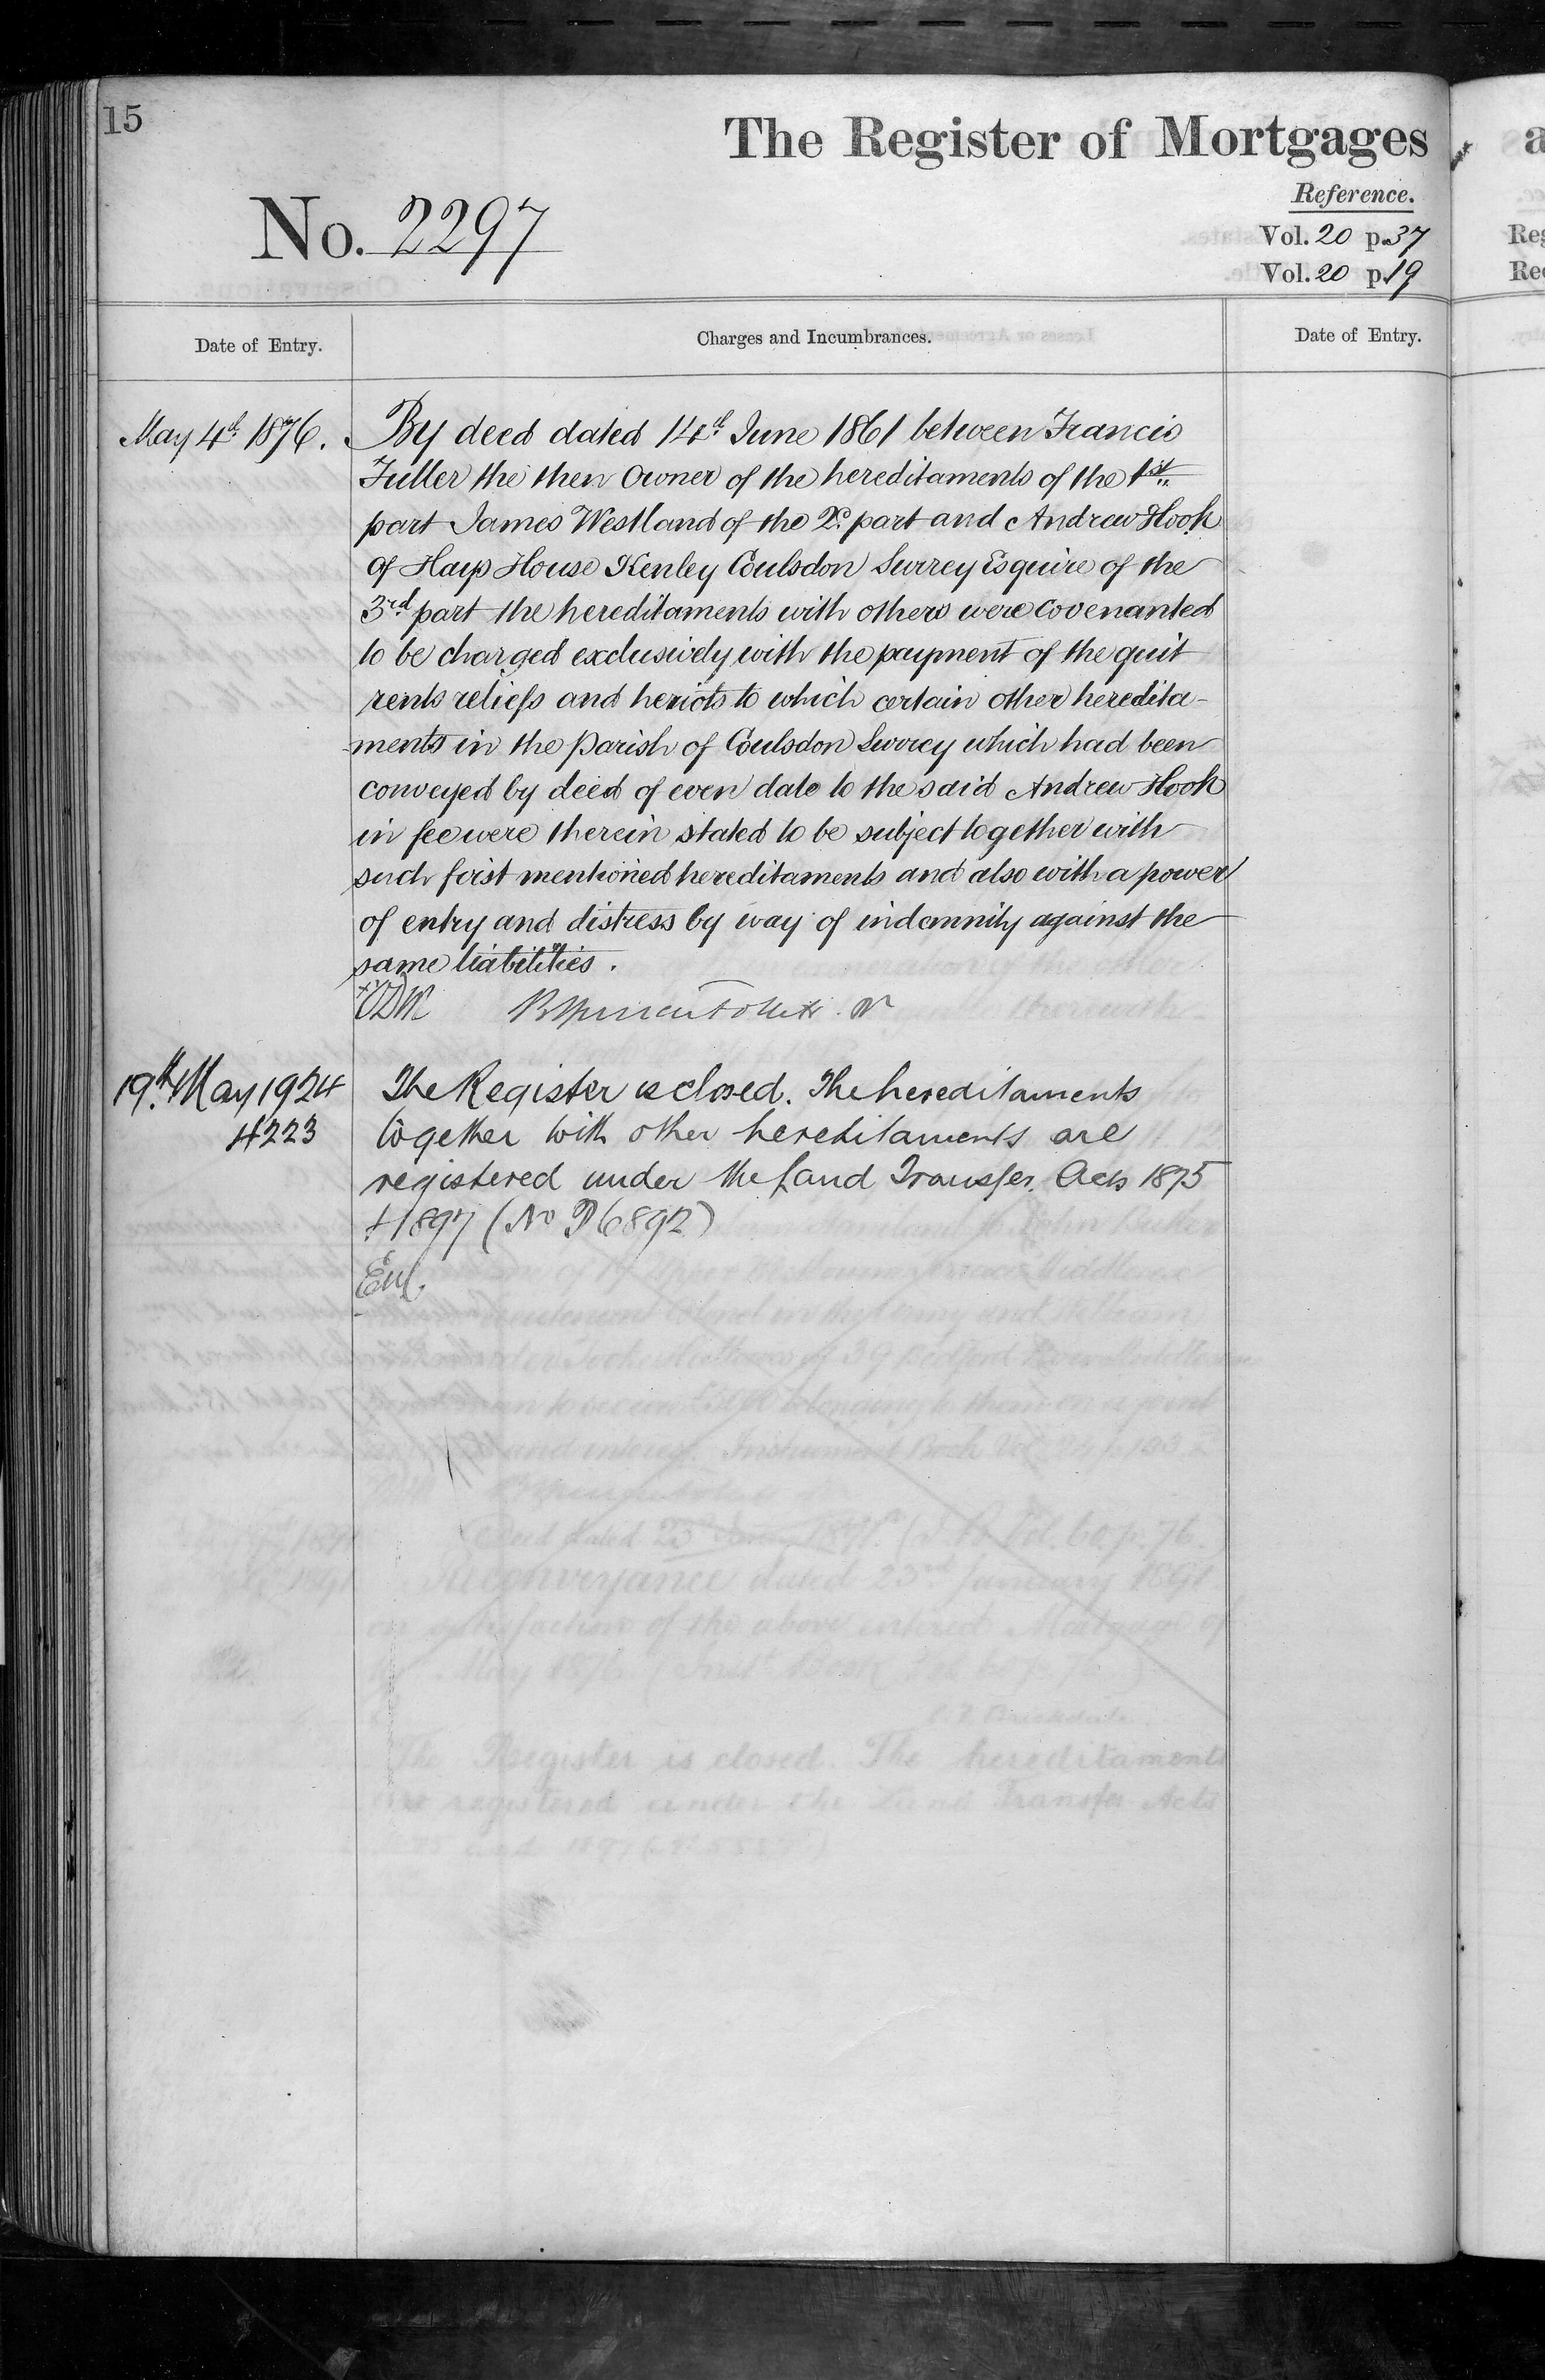 15
The Register of Mortgages
Reference.
No. 2297
Vol. 20 p. 37
Vol. 20 p. 19
Date of Entry.
Charges and Incumbrances.
Date of Entry.
May 4th 1876.
By deed dated 14th June 1861 between Francis
Fuller the then Owner of the hereditaments of the 1st
part James Westland of the 2d part and Andrew Hook
of Hays House Kenley Coulsdon Surrey Esquire of the
3rd part the hereditaments with others were covenanted
to be charged exclusively with the payment of the quit
rents reliefs and heriots to which certain other heredita-
-ments in the parish of Coulsdon Surrey which had been
conveyed by deed of even date to the said Andrew Hook
in fee were therein stated to be subject together with
such first mentioned hereditaments and also with a power
of entry and distress by way of indemnity against the
same liabilities.
19th May 1924
4223
The Register is closed. The hereditaments
together with other hereditaments are
registered under the Land Transfer Acts 1875
+ 1897 (No P6892)
The Register is closed. The hereditaments
are registered under the Land Transfer Acts